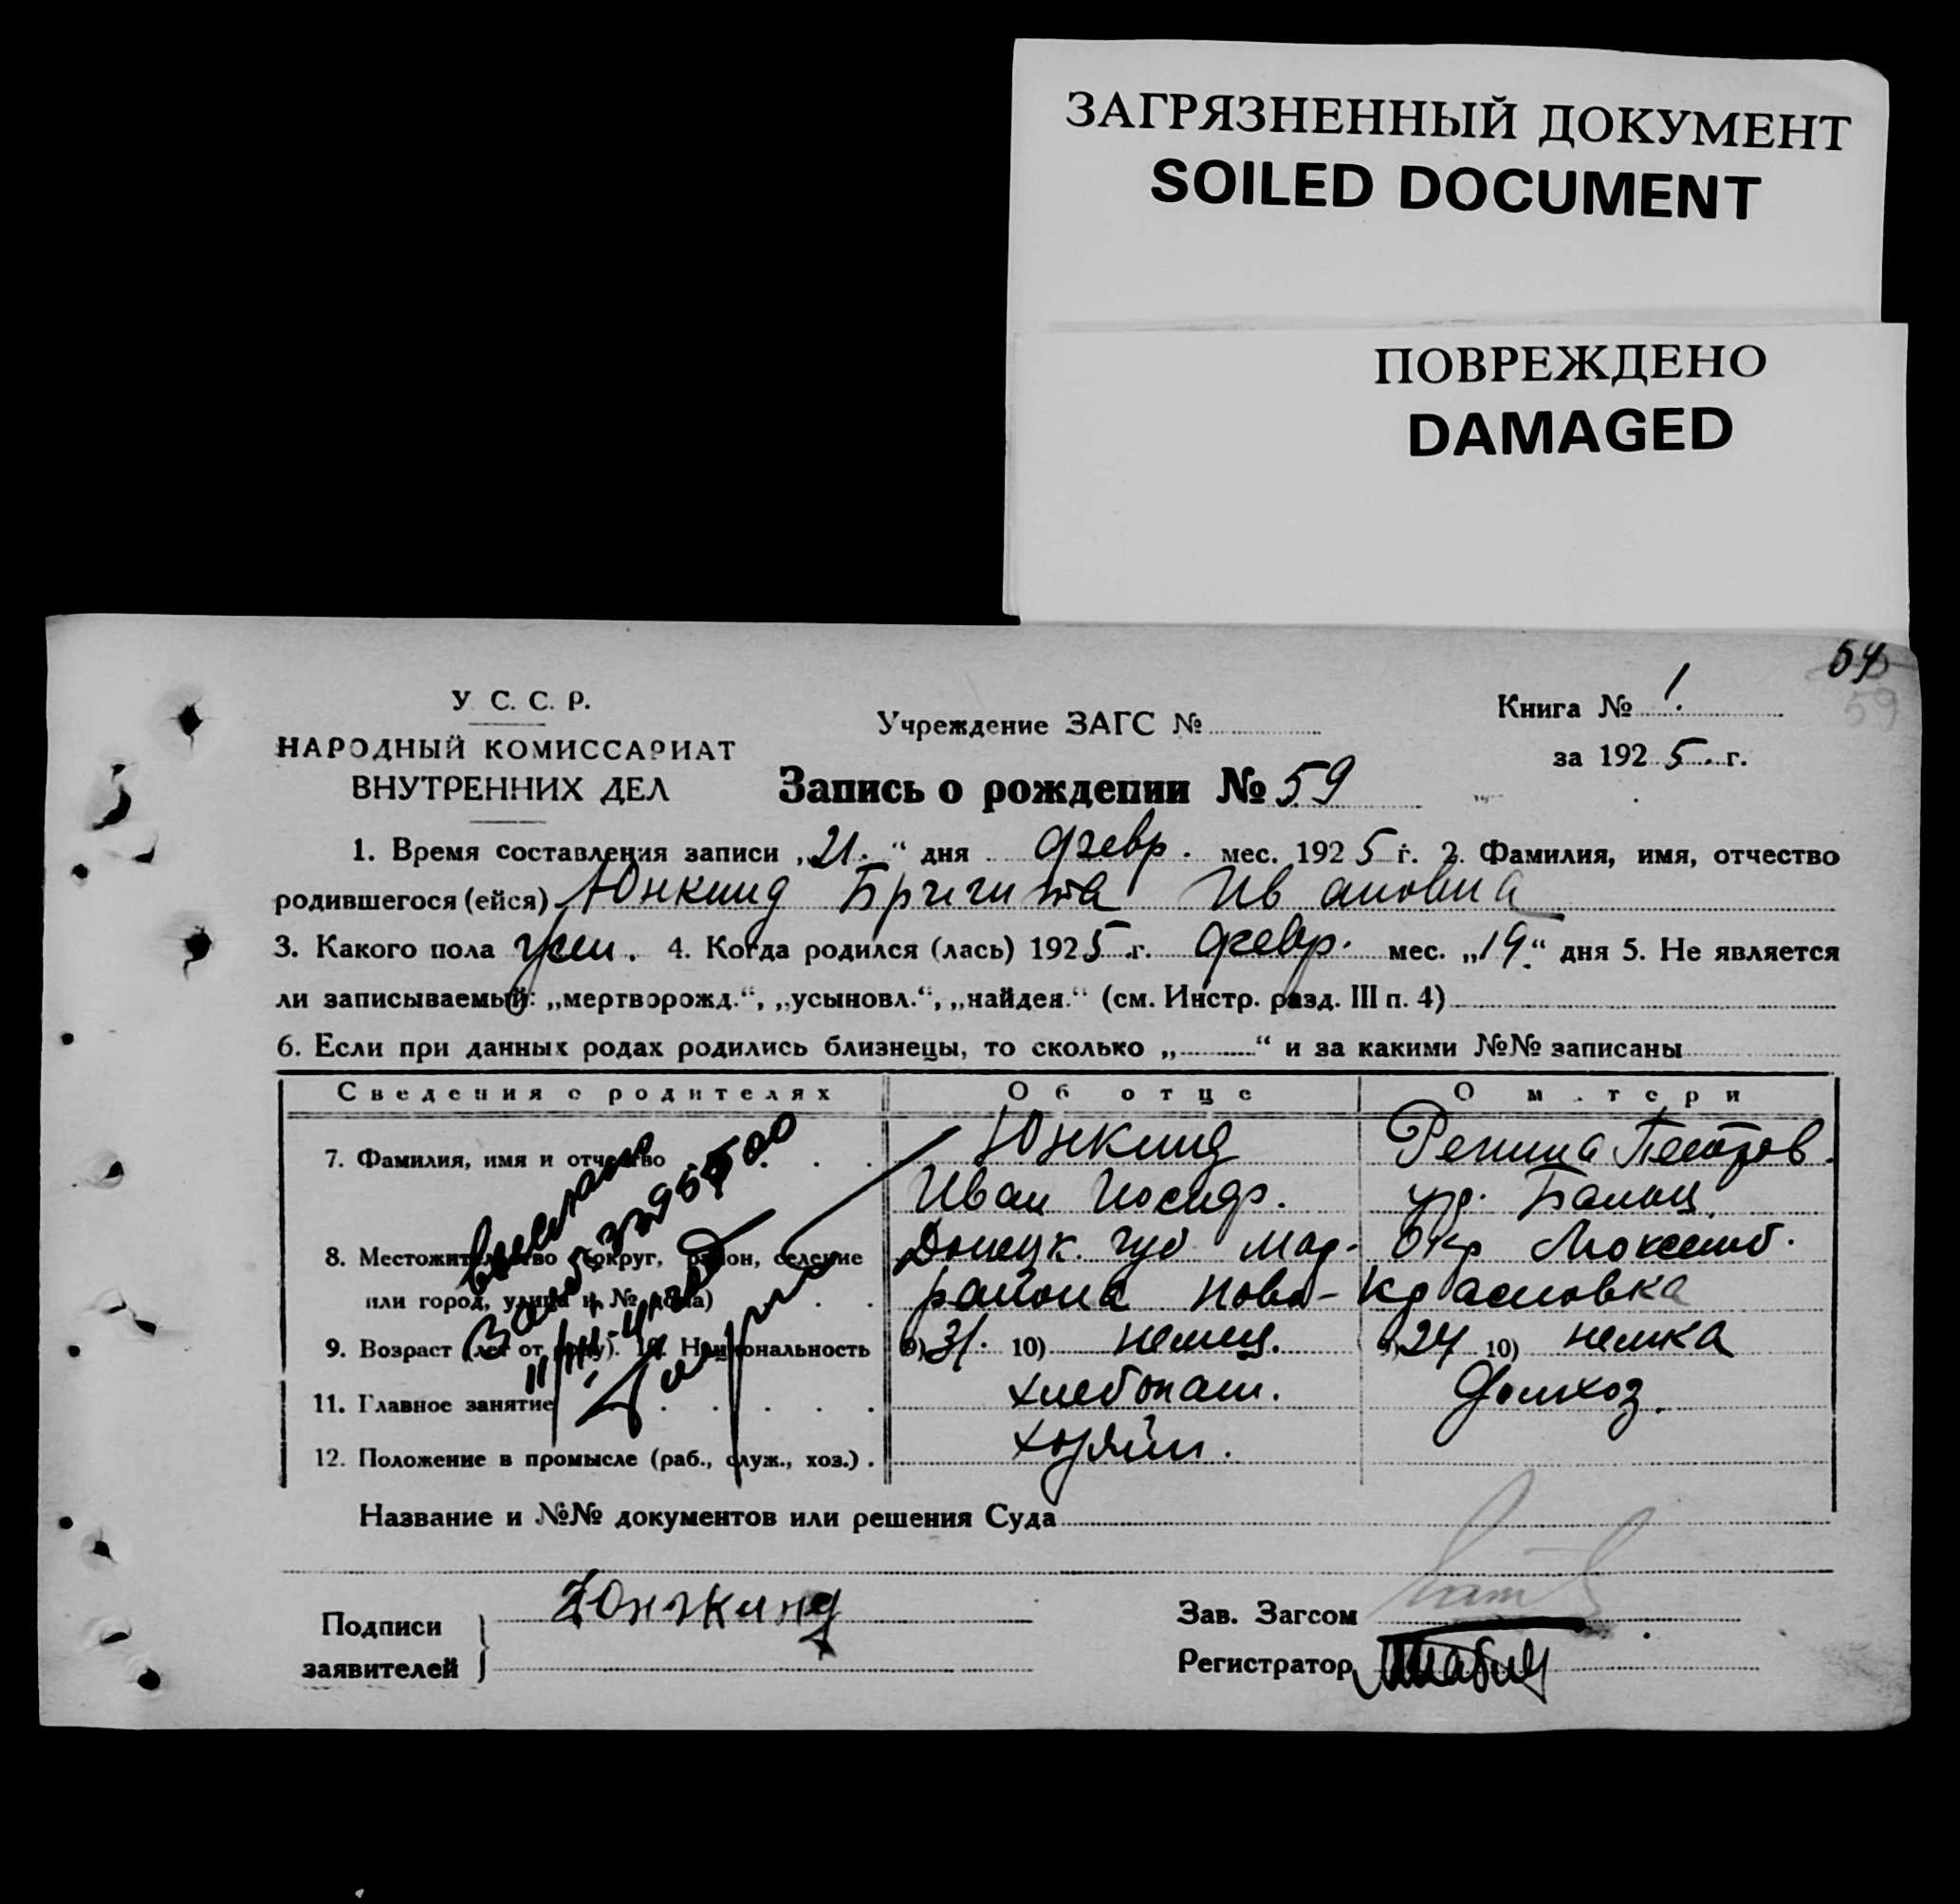 ЗАГРЯЗНЕННЫЙ ДОКУМЕНТ
SOILED DOCUMENT
ПОВРЕЖДЕНО
DAMAGED
54
59
У. С. С. Р.
НАРОДНЫЙ КОМИССАРИАТ
ВНУТРЕННИХ ДЕЛ
Учреждение ЗАГС №
Книга № 1.
за 1925 г.
Запись о рождении № 59
1. Время составления записи „21.“ дня февр. мес. 1925 г. 2. Фамилия, имя, отчество
родившегося (ейся) Юнкинд Бригита Ивановна
3. Какого пола жен. 4. Когда родился (лась) 1925 г. февр. мес. „19“ дня 5. Не является
ли записываемый: „мертворожд.“, „усыновл.“, „найден.“ (см. Инстр. разд. III п. 4)
6. Если при данных родах родились близнецы, то сколько „ “ и за какими №№ записаны
Сведения о родителях Об отце О м.тери
7. Фамилия, имя и отчество Юнкинд Регина Петров.
Иван Иосиф. ур.
8. Местожительство (округ, район, селение Донецк. губ Мар. Окр
или город, улица и № дома) района Ново-Красновка
9. Возраст (лет от роду). 10. Национальность 9) 31. 10) немец. 9) 24 10) немка
11. Главное занятие хлебопаш. домхоз.
12. Положение в промысле (раб., служ., хоз.) хозяин.
Название и №№ документов или решения Суда
Подписи
заявителей
Юнгкинд
Зав. Загсом
Регистратор